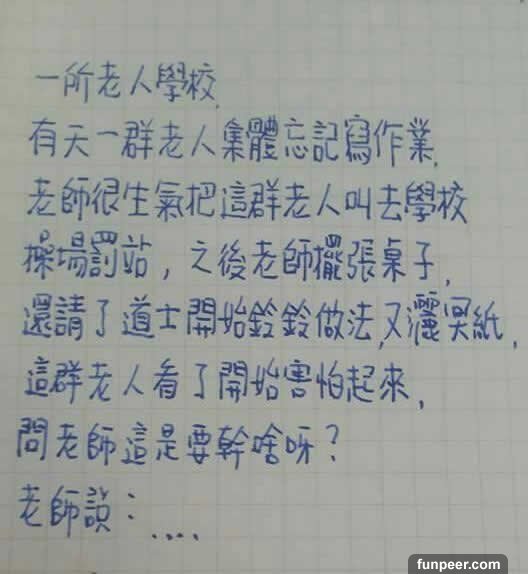 一所老人學校,
有天一群老人集體忘記寫作業,
老師很生氣把這群老人叫去學校
操場罰站，之後老師擺張桌子，
還請了道士開始鈴鈴做法,又灑冥紙，
這群老人看了開始害怕起來，
問老師這是要幹啥呀？
老師說：....
funpeer.com